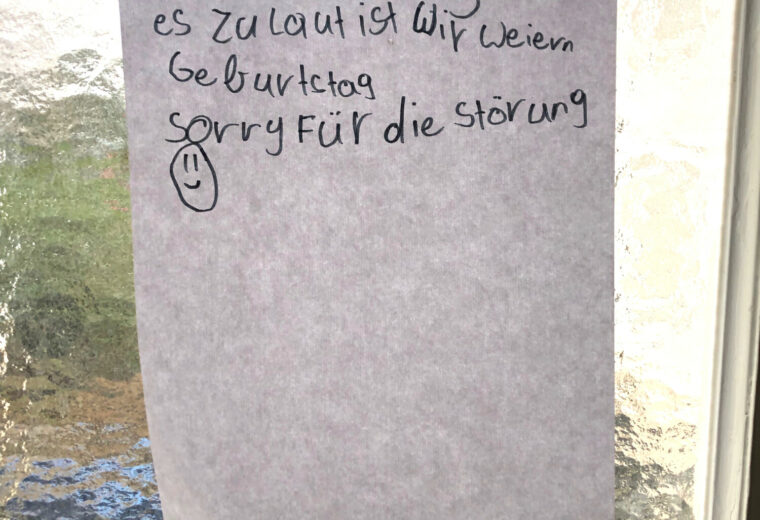 es zu laut ist Wir weiern
Geburtctag
Sorry Für die Störung